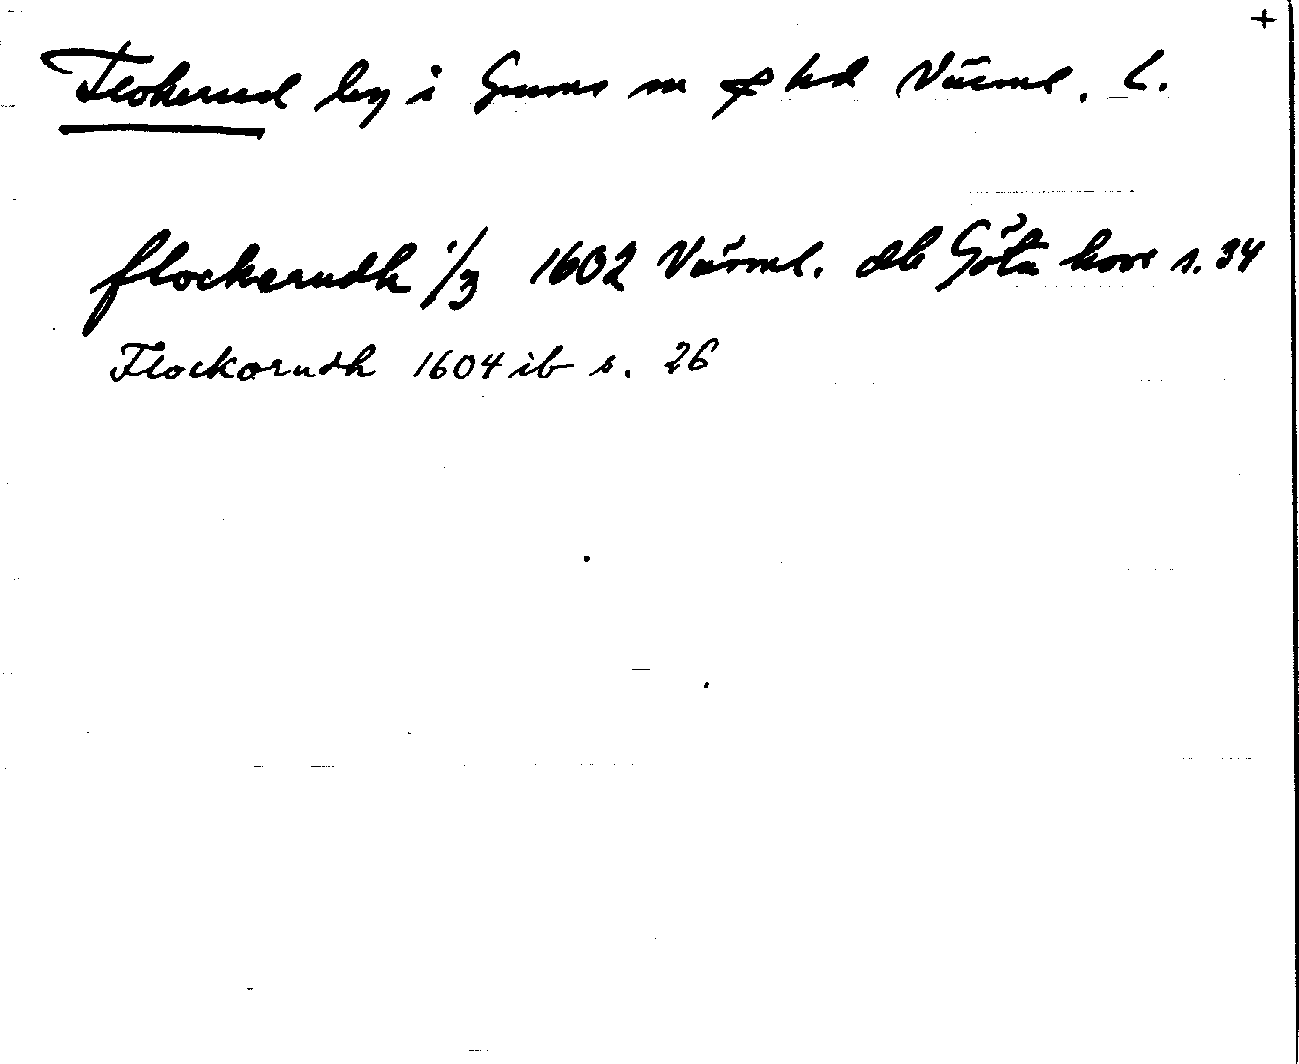 +
Flokerud by i Grums sn & hd Värml. L.
flockerudh 1/3 1602 Värml. db Göta hovr s. 34
Flockorudh 1604 ib s. 26